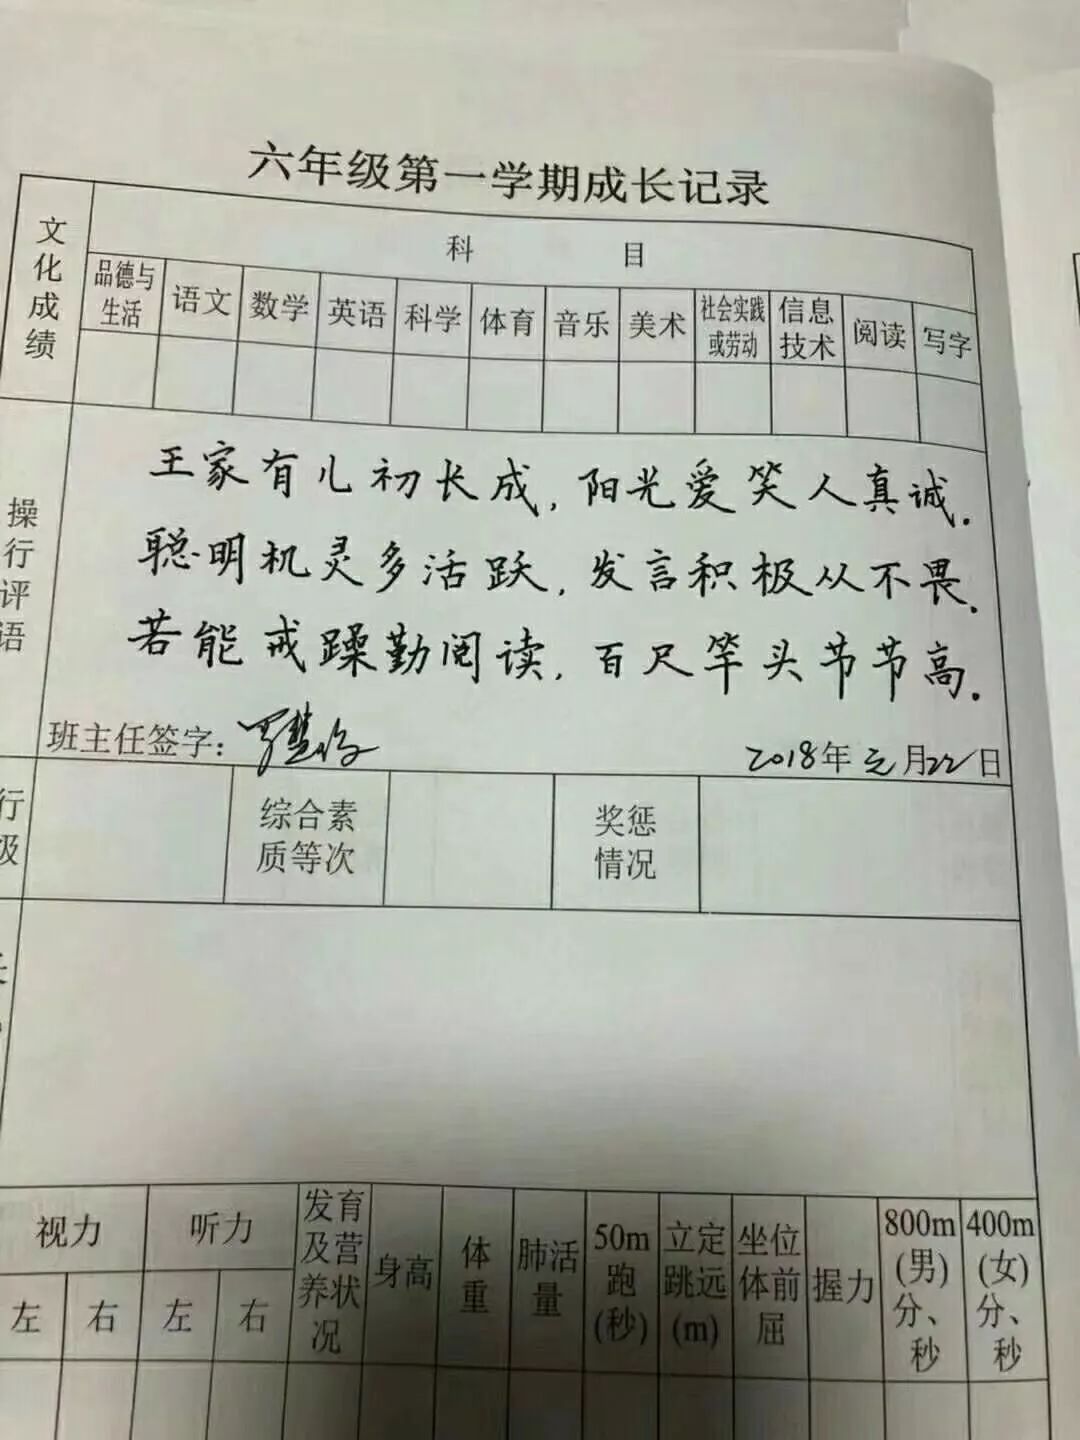 六年级第一学期成长记录
文化成绩
科 目
品德与生活 语文 数学 英语 科学 体育 音乐 美术 社会实践或劳动 信息技术 阅读 写字
操行评语
王家有儿初长成,阳光爱笑人真诚.
聪明机灵多活跃,发言积极从不畏.
若能戒躁勤阅读,百尺竿头节节高.
班主任签字:
2018年元月22日
综合素质等次 奖惩情况
视力 听力 发育及营养状况 身高 体重 肺活量 50m跑(秒) 立定跳远(m) 坐位体前屈 握力 800m(男)分、秒 400m(女)分、秒
左 右 左 右